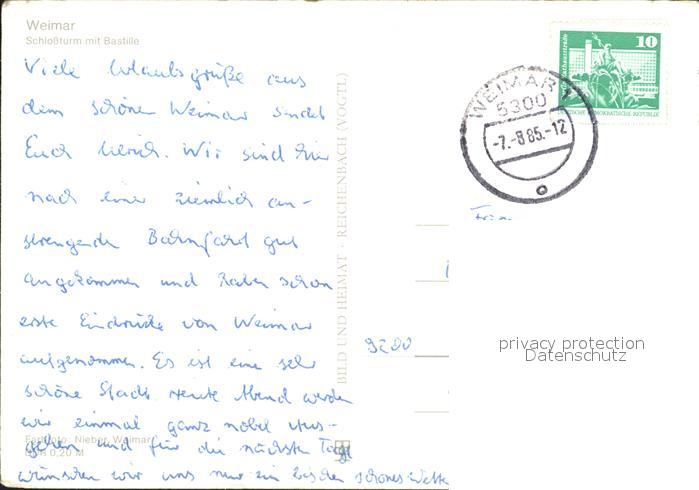 Weimar
Schloßturm mit Bastille
Viele Urlaubsgrüße aus
dem schönen Weimar sendet
Euch Ulrich. Wir sind hier
nach einer ziemlich an-
strengenden Bahnfahrt gut
angekommen und haben schon
erste Eindrücke von Weimar
aufgenommen. Es ist eine sehr
schöne Stadt. Heute Abend werden
wir einmal ganz nobel aus-
gehen und für die nächsten Tage
wünschen wir uns nur ein bißchen schönes Wetter
Farbfoto: Nieber, Weimar
0,20 M
BILD UND HEIMAT · REICHENBACH (VOGTL)
10
DEUTSCHE DEMOKRATISCHE REPUBLIK
WEIMAR 1
5300
-7.-8.85.-12
9200
privacy protection
Datenschutz